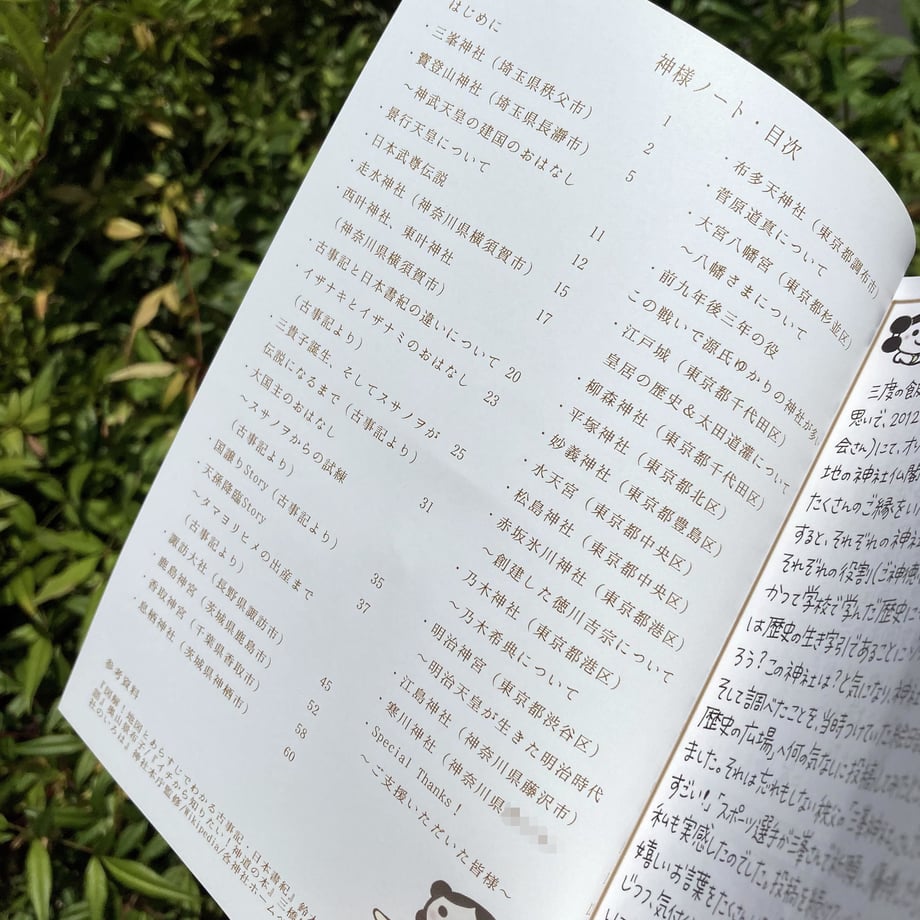 神様ノート・目次
はじめに 1
・三峯神社（埼玉県秩父市） 2
・寶登山神社（埼玉県長瀞市） 5
～神武天皇の建国のおはなし
・景行天皇について 11
・日本武尊伝説 12
・走水神社（神奈川県横須賀市） 15
・西叶神社、東叶神社 17
（神奈川県横須賀市）
・古事記と日本書紀の違いについて 20
・イザナキとイザナミのおはなし 23
（古事記より）
・三貴子誕生、そしてスサノヲが 25
伝説になるまで（古事記より）
・大国主のおはなし 31
～スサノヲからの試練
（古事記より）
・国譲りStory（古事記より） 35
・天孫降臨Story 37
～タマヨリヒメの出産まで
（古事記より）
・諏訪大社（長野県諏訪市） 45
・鹿島神宮（茨城県鹿島市） 52
・香取神宮（千葉県香取市） 58
・息栖神社（茨城県神栖市） 60
・布多天神社（東京都調布市）
・菅原道真について
・大宮八幡宮（東京都杉並区）
～八幡さまについて
・前九年後三年の役
この戦いで源氏ゆかりの神社が多い
・江戸城（東京都千代田区）
皇居の歴史＆太田道灌について
・柳森神社（東京都千代田区）
・平塚神社（東京都北区）
・妙義神社（東京都豊島区）
・水天宮（東京都中央区）
・松島神社（東京都中央区）
・赤坂氷川神社（東京都港区）
～創建した徳川吉宗について
・乃木神社（東京都港区）
～乃木希典について
・明治神宮（東京都渋谷区）
～明治天皇が生きた明治時代
・江島神社（神奈川県藤沢市）
・寒川神社（神奈川県
・Special Thanks！
～ご支援いただいた皆様～
参考資料
『図解！地図とあらすじでわかる。古事記・日本書紀』
『イチから知りたい！神道の本』
神社本庁監修/Wikipedia/各神社ホームペ
三度の飯
思いで、201
会さん）にて、オ
地の神社仏閣
たくさんのご縁をい
すると、それぞれの神社
それぞれの役割（ご神徳
かつて学校で学んだ歴史に
は歴史の生き字引であることに
ろう？この神社は？と気になり、神社
そして調べたことを、当時つけていた
歴史の広場」へ何の気なしに投稿して
ました。それは忘れもしない秩父の三峯神社
すごい！」「スポーツ選手が三峯
私も実感したのでした。投稿を
嬉しいお言葉をたくさ
じつつ、気付